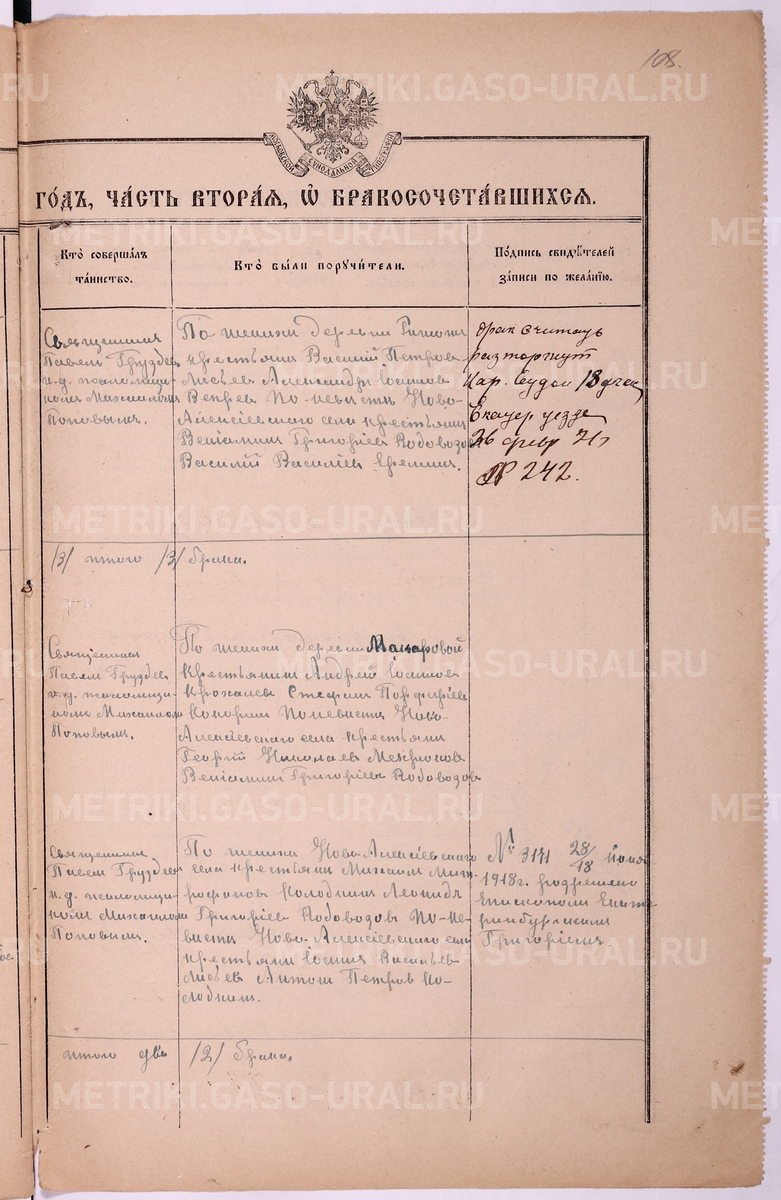 108.
МОСКОВСКОЙ СѴНОДАЛЬНОЙ ТИПОГРАФІИ
ГО́ДЪ, ЧА́СТЬ ВТОРА́Я, Ѡ БРАКОСОЧЕТА́ВШИХСЯ.
Кто̀ соверша́лъ
та́инство.
Кто̀ бы́ли порꙋчи́тели.
По́дпись свидѣ́телей
за́писи по жела́нїю.
Священник
Павел Груздев
и. д. псаломщи-
ком Михаилом
Поповым.
По жениху деревни
крестьяне Василий Петров
Лисьев Александр Иосифов
Вепрев по невесте Ново-
Алексіевскаго села крестьяне
Веніамин Григоріев Водовозов
Василій Василіев Еремин.
брак считать
расторгнут
Нар. Судом 13 участ.
Екатер уезда
26 февр 21 г
№ 242.
/3/ итого /3/ брака.
Священник
Павел Груздев
и. д. псаломщи-
ком Михаилом
Поповым.
По жениху деревни Макаровой
крестьянин Андрей Иосифов
Стефан Порфирьев
по невесте Ново-
Алексіевскаго села крестьяне
Георгій Николаев
Веніамин Григоріев Водовозов
Священник
Павел Груздев
и. д. псаломщи-
ком Михаилом
Поповым.
По жениху Ново-Алексіевскаго
села крестьяне Михаил Мит-
рофанов Колодкин Леонид
Григоріев Водовозов по не-
весте Ново-Алексіевскаго села
крестьяне Иосиф Васильев
Лисьев Антон Петров Ко-
лодкин.
№ 3141 28/18 Йоня
1918 г. разрешено
Епископом Екате-
ринбургским
Григоріем.
итого два /2/ брака.
METRIKI.GASO-URAL.RU